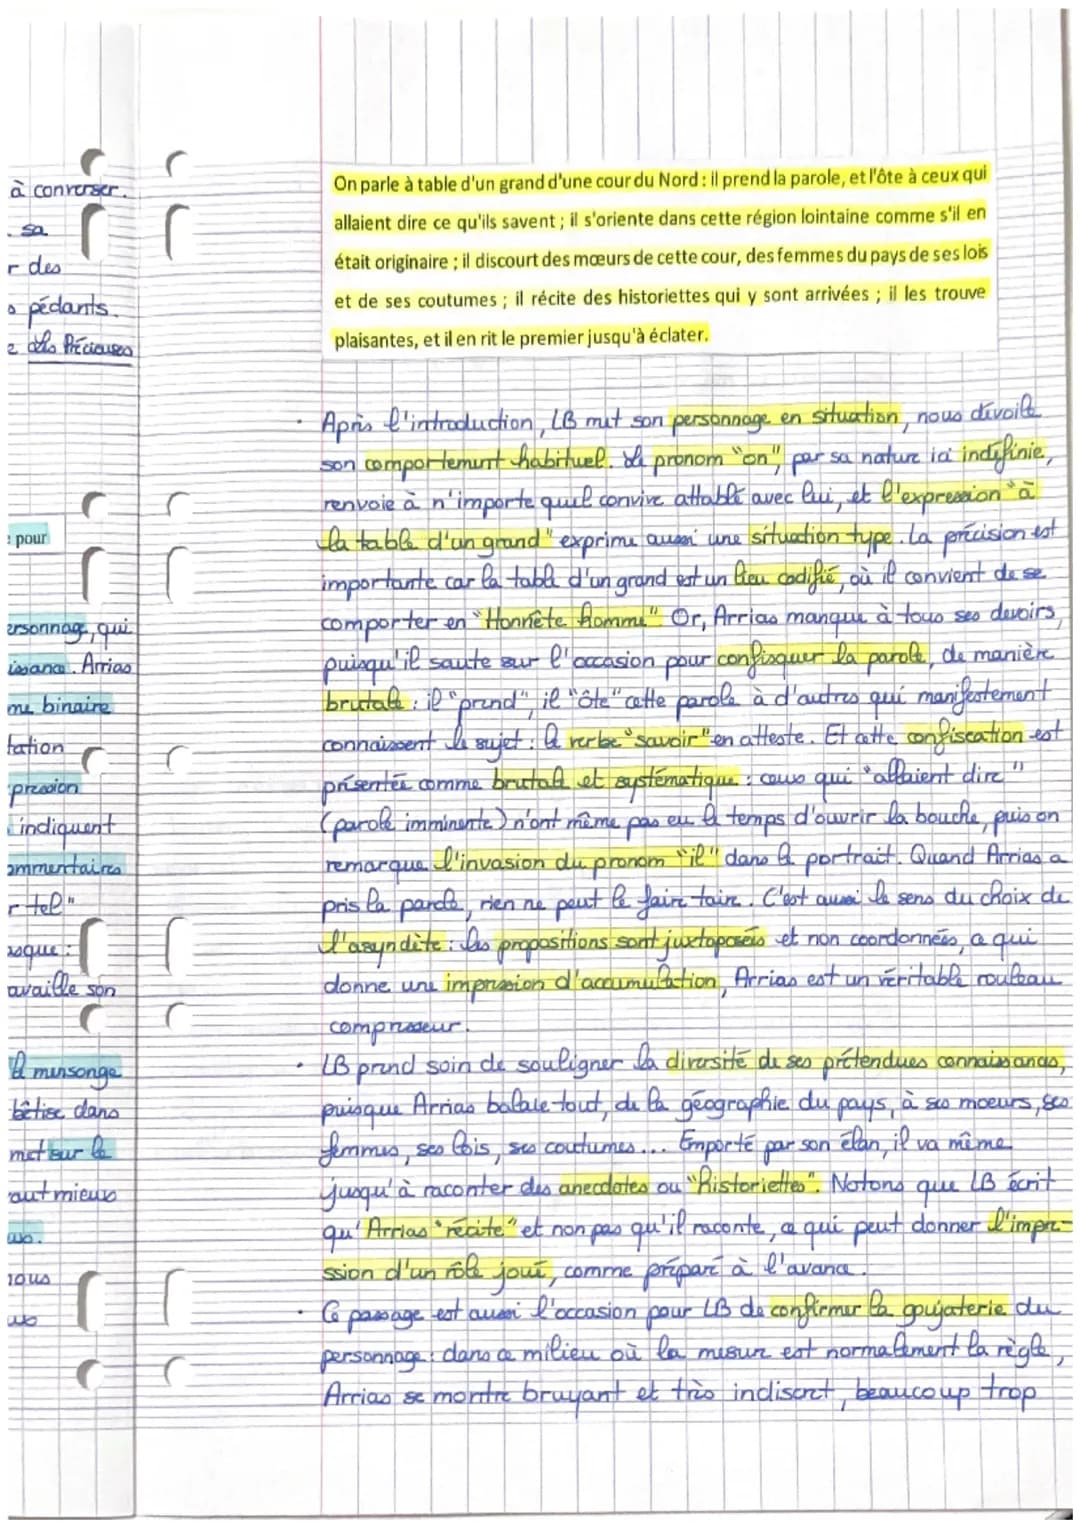 à converser.
sa
r des
pédants.
e des Précieuses
pour
ersonnage, qui
issance. Arrias
me binaire
tation
pression
indiquent
ommentaires
r tel"
usque :
availle son
l mensonge
bêtise dans
met sur le
aut mieux
us.
nous
us
On parle à table d'un grand d'une cour du Nord : il prend la parole, et l'ôte à ceux qui
allaient dire ce qu'ils savent ; il s'oriente dans cette région lointaine comme s'il en
était originaire ; il discourt des mœurs de cette cour, des femmes du pays de ses lois
et de ses coutumes ; il récite des historiettes qui y sont arrivées ; il les trouve
plaisantes, et il en rit le premier jusqu'à éclater.
· Après l'introduction, LB met son personnage en situation, nous dévoile
son comportement habituel. Le pronom "on", par sa nature ici indéfinie,
renvoie à n'importe quel convive attablé avec lui, et l'expression "à
la table d'un grand" exprime aussi une situation type. La précision est
importante car la table d'un grand est un lieu codifié, où il convient de se
comporter en "Honnête homme". Or, Arrias manque à tous ses devoirs,
puisqu'il saute sur l'occasion pour confisquer la parole, de manière
brutale : il "prend", il "ôte" cette parole à d'autres qui manifestement
connaissent le sujet : le verbe "savoir" en atteste. Et cette confiscation est
présentée comme brutale et systématique : ceux qui "allaient dire"
(parole imminente) n'ont même pas eu le temps d'ouvrir la bouche, puis on
remarque l'invasion du pronom "il" dans le portrait. Quand Arrias a
pris la parole, rien ne peut le faire taire. C'est aussi le sens du choix de
l'asyndète : les propositions sont juxtaposées et non coordonnées, ce qui
donne une impression d'accumulation, Arrias est un véritable rouleau
compresseur.
· LB prend soin de souligner la diversité de ses prétendues connaissances,
puisque Arrias balaie tout, de la géographie du pays, à ses moeurs, ses
femmes, ses lois, ses coutumes... Emporté par son élan, il va même
jusqu'à raconter des anecdotes ou "historiettes". Notons que LB écrit
qu'Arrias "récite" et non pas qu'il raconte, ce qui peut donner l'impre-
ssion d'un rôle joué, comme préparé à l'avance.
· Ce passage est aussi l'occasion pour LB de confirmer la goujaterie du
personnage : dans ce milieu où la mesure est normalement la règle,
Arrias se montre bruyant et très indiscret, beaucoup trop